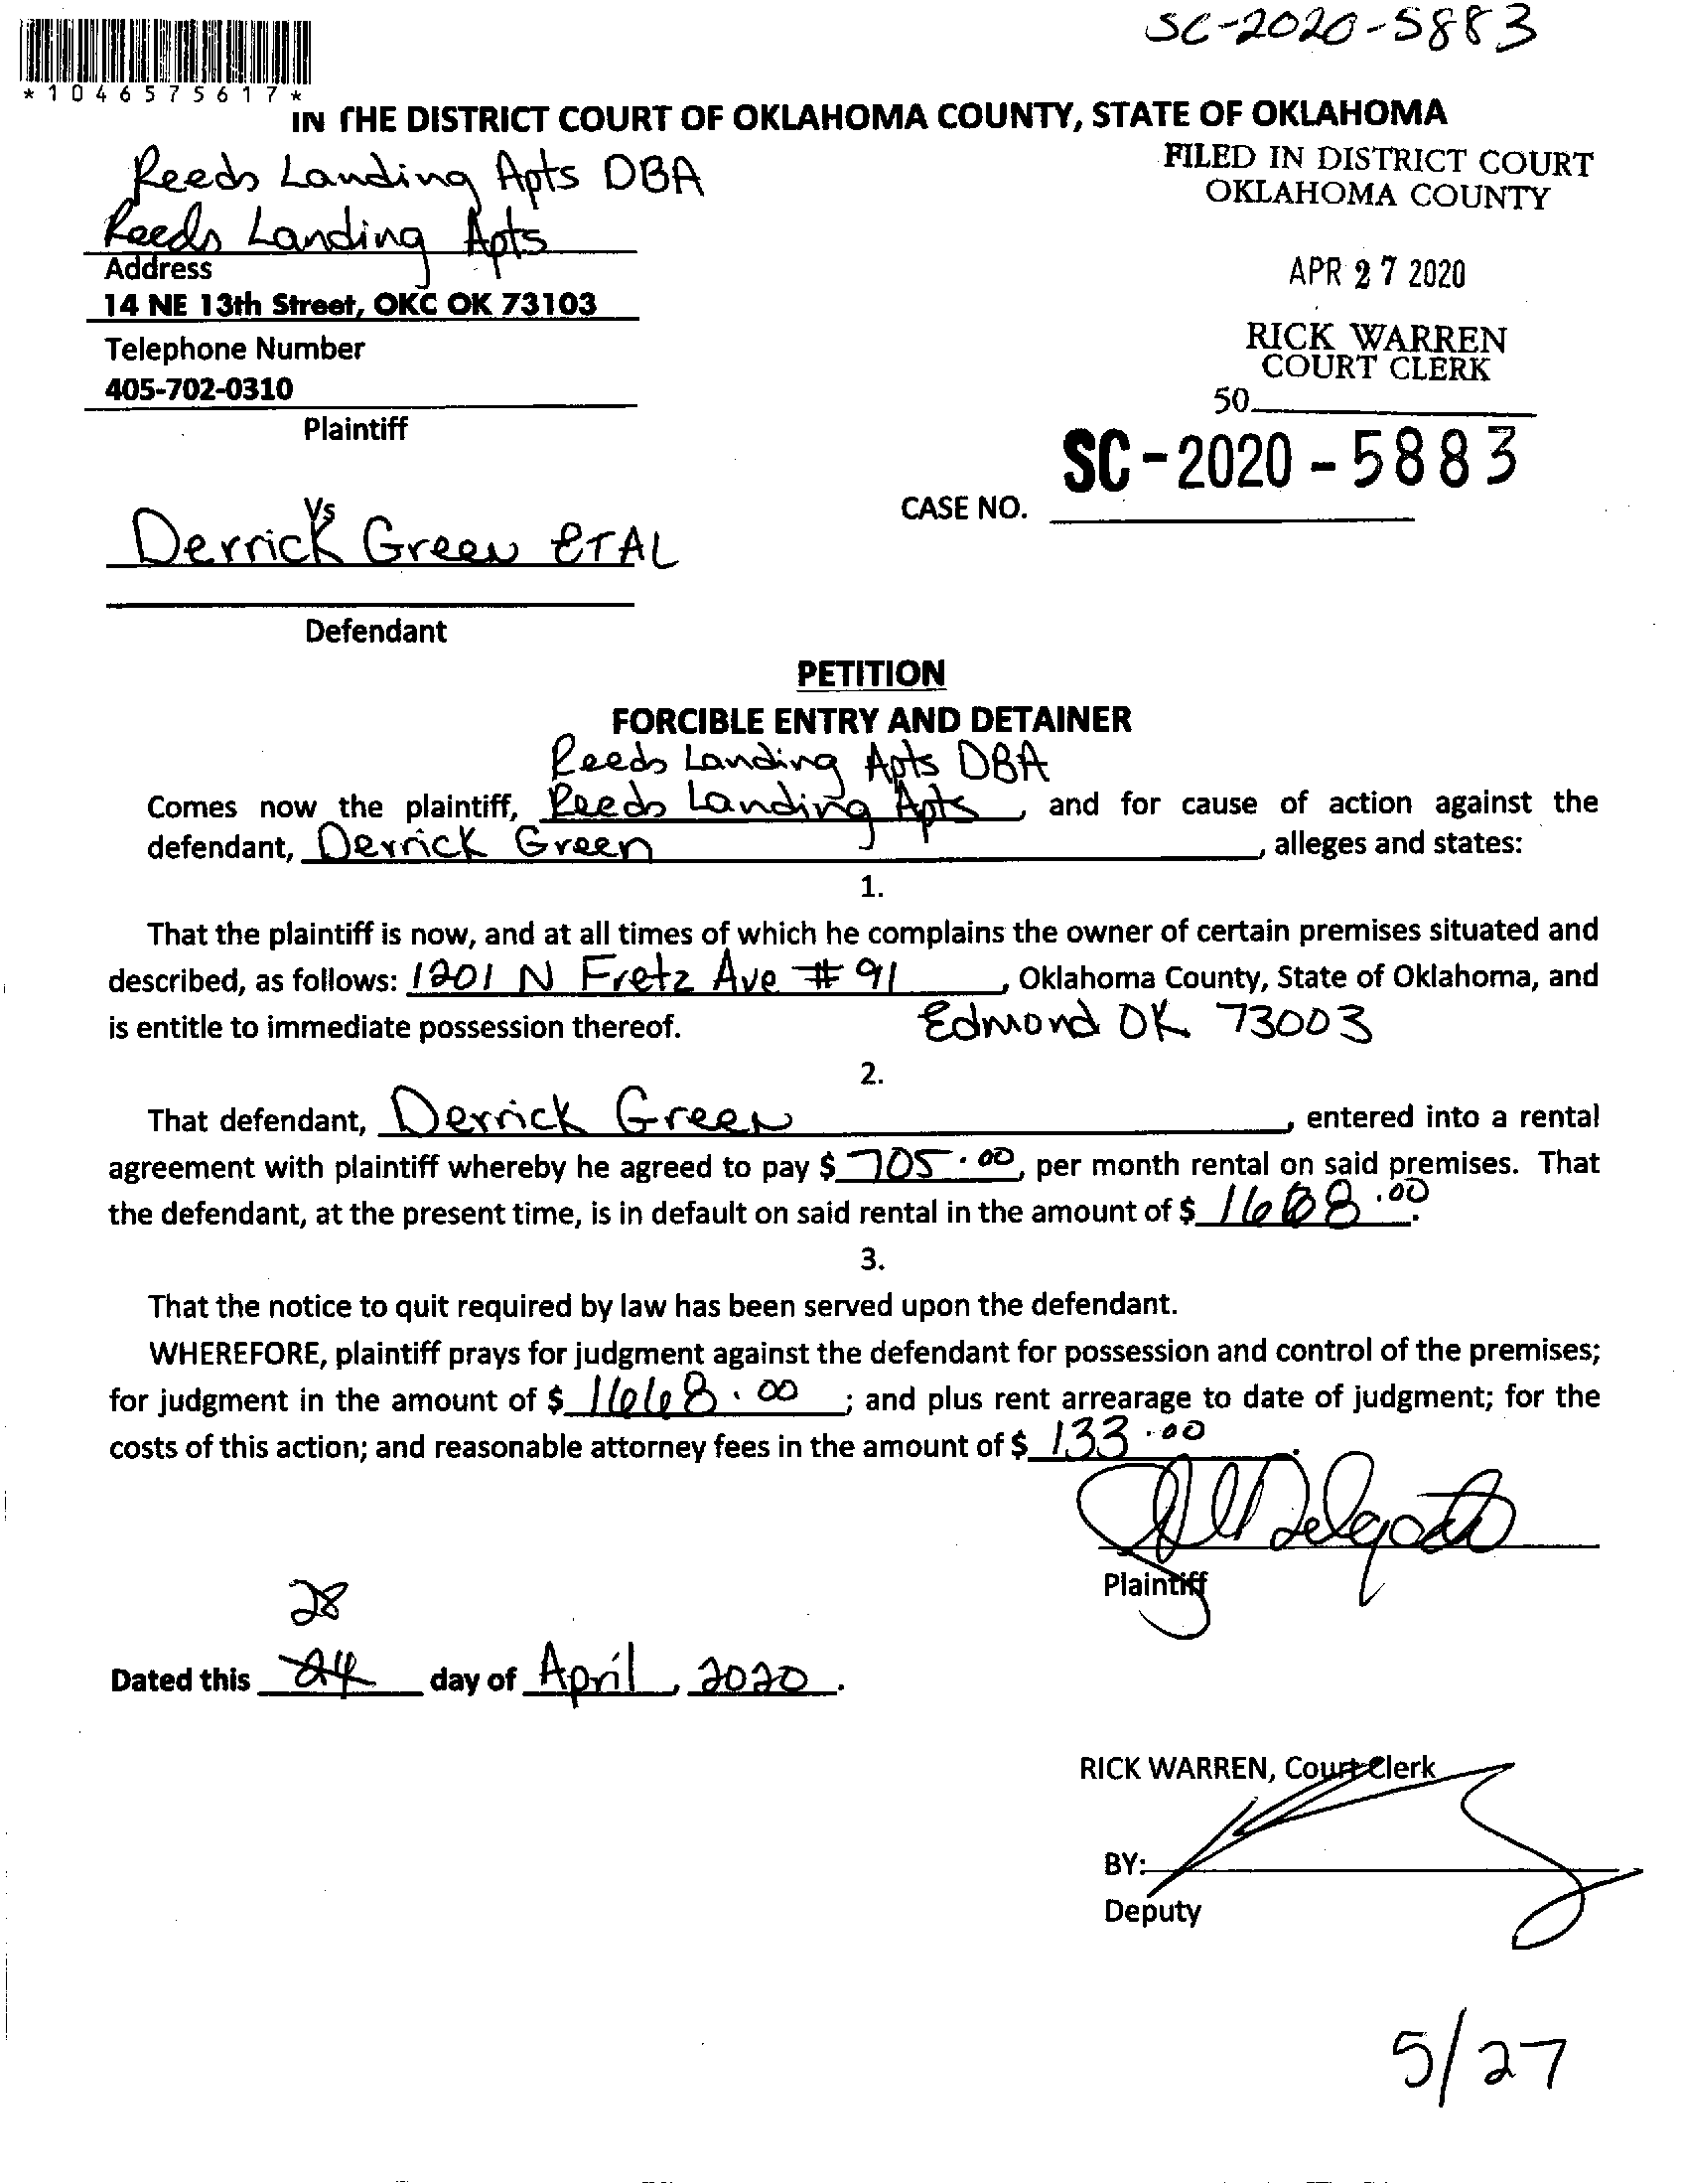 SC-2020-5883
*1046575617*
IN THE DISTRICT COURT OF OKLAHOMA COUNTY, STATE OF OKLAHOMA
Reeds Landing Apts DBA
Reeds Landing Apts
FILED IN DISTRICT COURT
OKLAHOMA COUNTY
Address
14 NE 13th Street, OKC OK 73103
APR 27 2020
Telephone Number
405-702-0310
RICK WARREN
COURT CLERK
50
Plaintiff
SC-2020-5883
CASE NO.
Vs
Derrick Green ETAL
Defendant
PETITION
FORCIBLE ENTRY AND DETAINER
Reeds Landing Apts DBA
Comes now the plaintiff, Reeds Landing Apts, and for cause of action against the
defendant, Derrick Green, alleges and states:
1.
That the plaintiff is now, and at all times of which he complains the owner of certain premises situated and
described, as follows: 1201 N Fretz Ave # 91, Oklahoma County, State of Oklahoma, and
is entitle to immediate possession thereof. Edmond OK 73003
2.
That defendant, Derrick Green, entered into a rental
agreement with plaintiff whereby he agreed to pay $ 705.00, per month rental on said premises. That
the defendant, at the present time, is in default on said rental in the amount of $ 1668.00.
3.
That the notice to quit required by law has been served upon the defendant.
WHEREFORE, plaintiff prays for judgment against the defendant for possession and control of the premises;
for judgment in the amount of $ 1668.00; and plus rent arrearage to date of judgment; for the
costs of this action; and reasonable attorney fees in the amount of $ 133.00.
Plaintiff
28
Dated this 24 day of April, 2020.
RICK WARREN, Court Clerk
BY:
Deputy
5/27